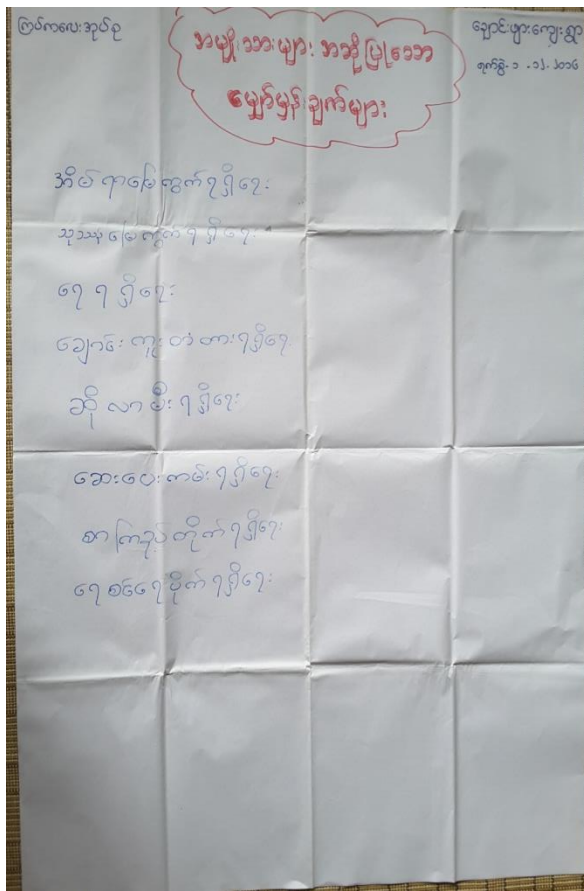 ကြပ်ကလေးအုပ်စု
ချောင်းဖျားကျေးရွာ
အမျိုးသားများ အဆိုပြုသော
မျှော်မှန်းချက်များ
ရက်စွဲ-၁.၁၂.၂၀၁၆
အိမ်ရာမြေကွက်ရရှိရေး
သုဿန်မြေကွက်ရရှိရေး
ရေရရှိရေး
ချောင်းကူးတံတားရရှိရေး
ဆိုလာမီးရရှိရေး
ဆေးပေးခမ်းရရှိရေး
စာကြည့်တိုက်ရရှိရေး
ရေစင်ရေပိုက်ရရှိရေး